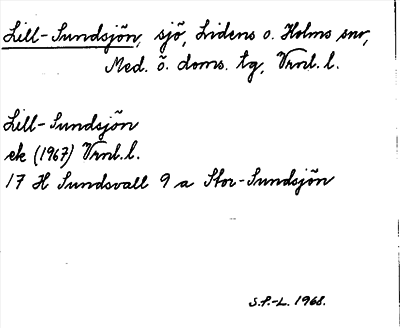 Lill-Sundsjön, sjö, Lidens o. Holms snr,
Med. ö. doms. tg, Vrnl. l.
Lill-Sundsjön
ek (1967) Vrnl. l.
17 H Sundsvall 9 a Stor-Sundsjön
S.P.-L. 1968.